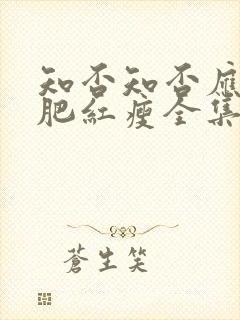 知否知否應
肥紅瘦全集
蒼生笑